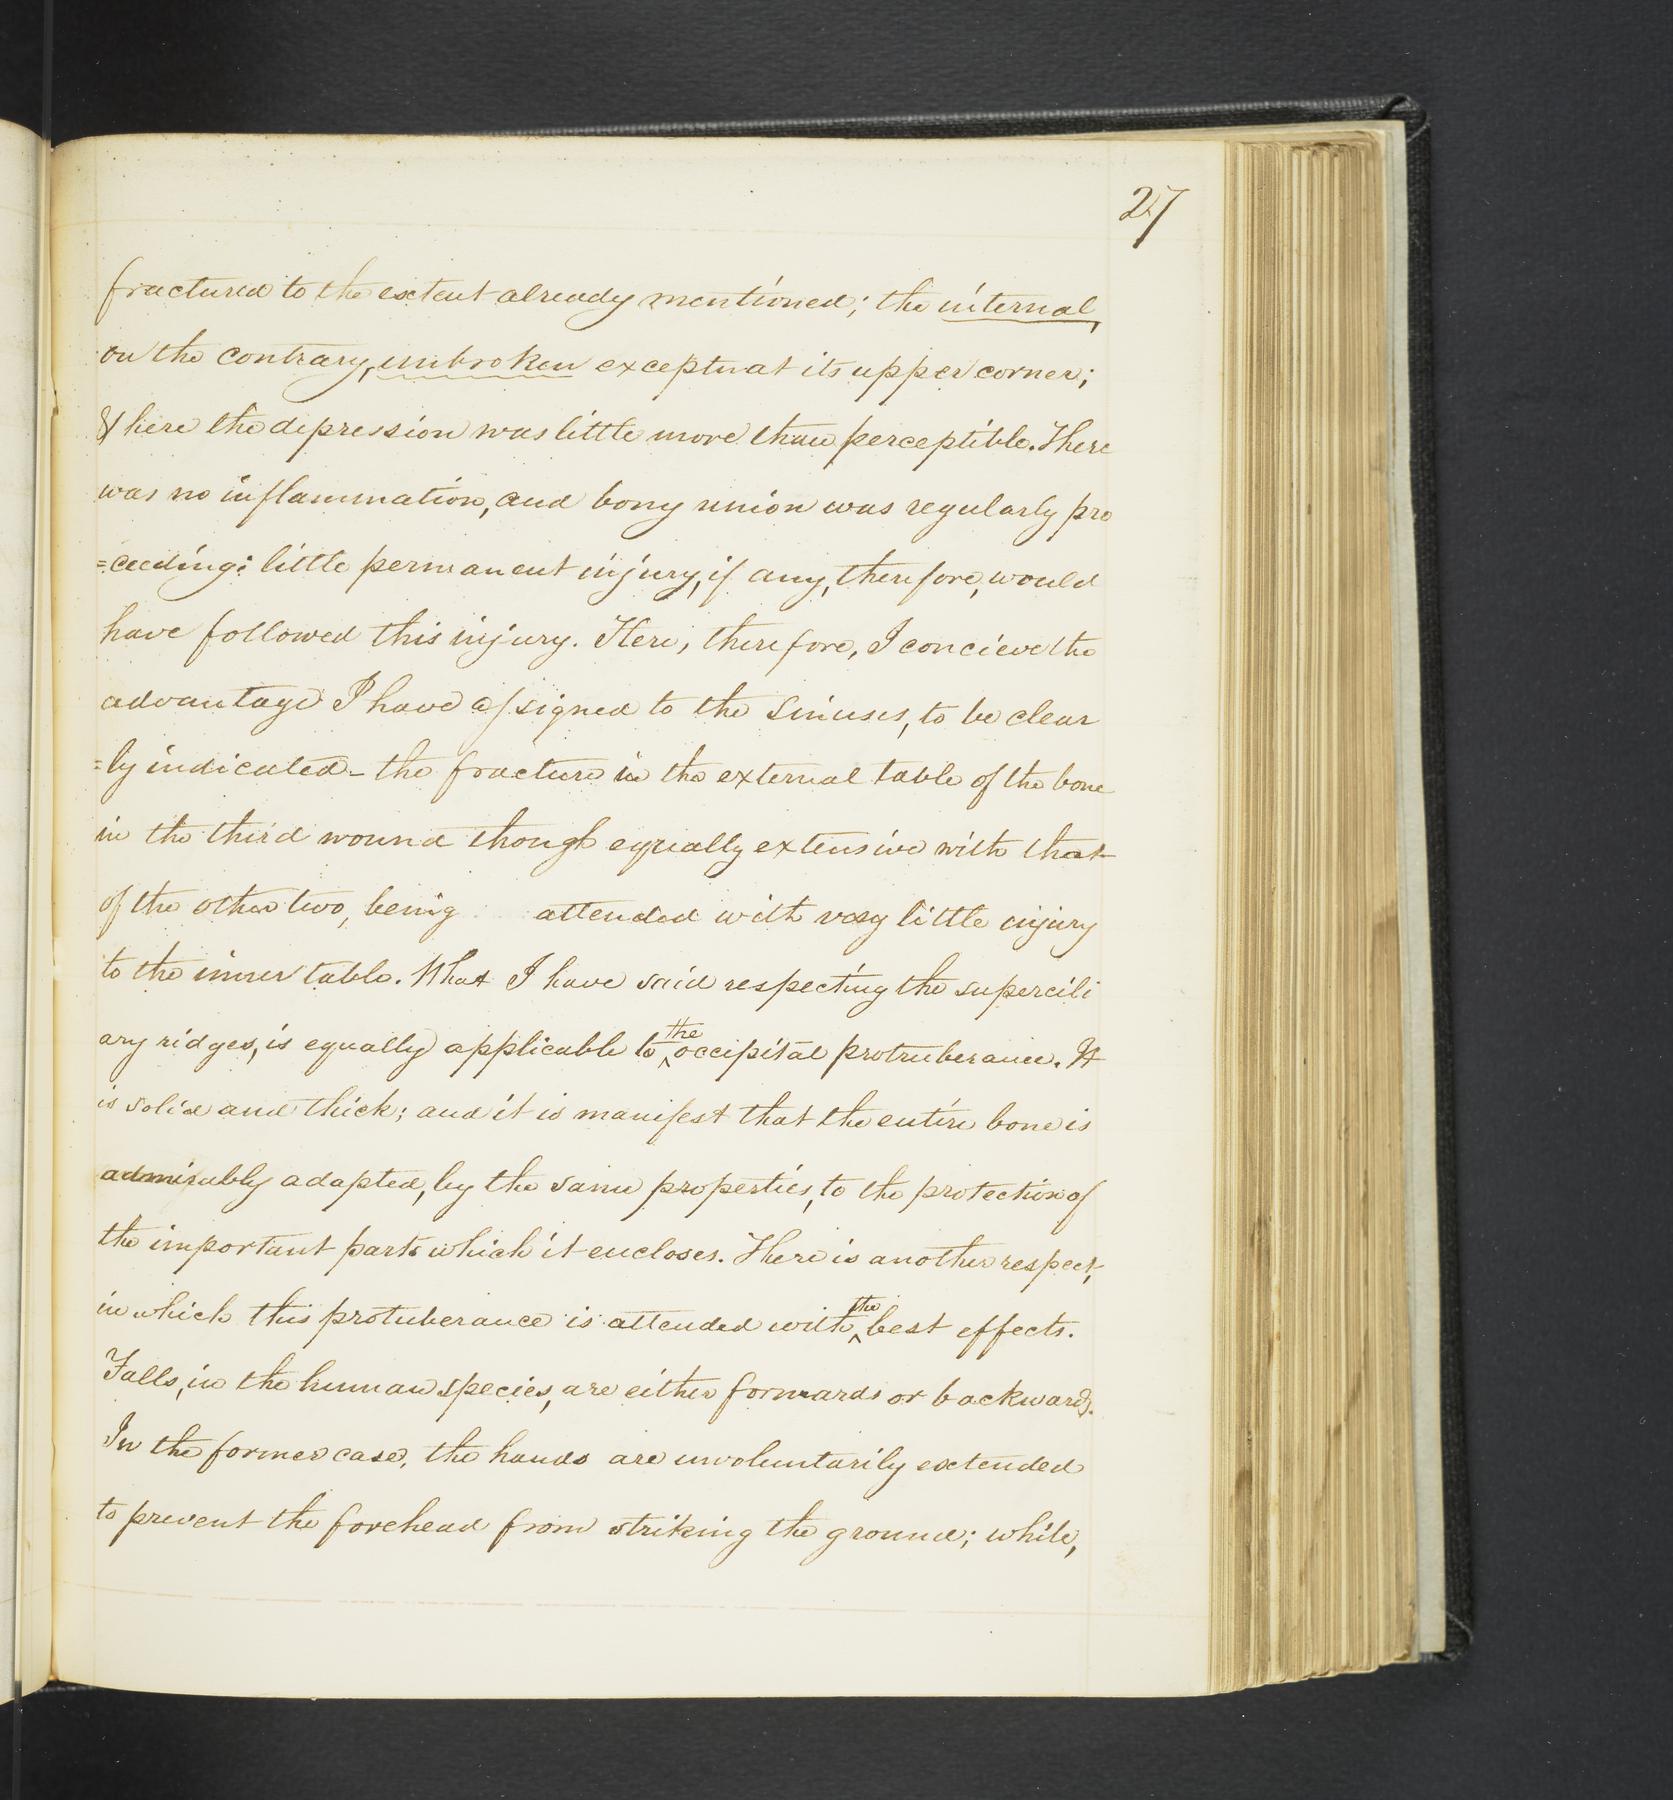 27
fractured to the extent already mentioned; the internal,
on the contrary, unbroken except at its upper corner;
& here the depression was little more than perceptible. There
was no inflammation, and bony union was regularly pro
=ceeding; little permanent injury, if any, therefore, would
have followed this injury. Here, therefore, I concieve the
advantage I have assigned to the sinuses, to be clear
=ly indicated – the fracture in the external table of the bone
in the third wound though equally extensive with that
of the other two, being attended with very little injury
to the inner table. What I have said respecting the supercili
ary ridges, is equally applicable to the occipital protruberance. It
is solid and thick; and it is manifest that the entire bone is
admirably adapted, by the same properties, to the protection of
the important parts which it encloses. There is another respect,
in which this protuberance is attended with the best effects.
Falls, in the human species, are either forwards or backwards.
In the former case, the hands are unvoluntarily extended
to prevent the forehead from striking the ground; while,